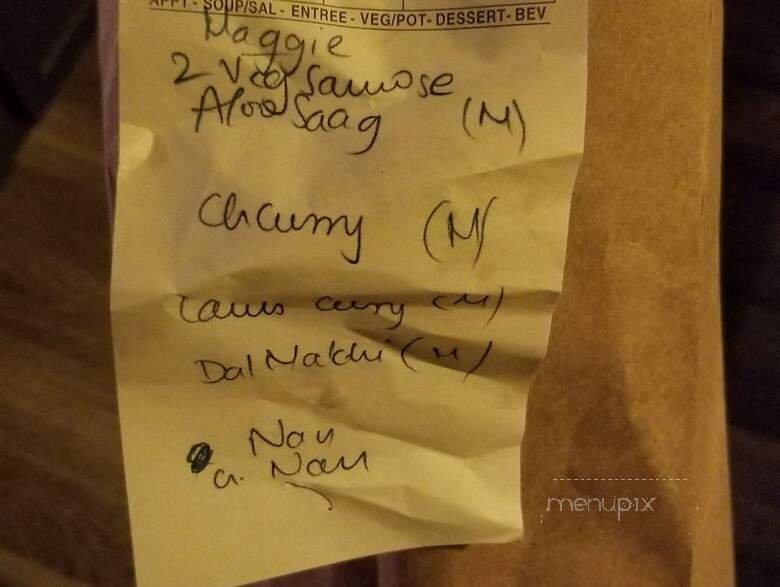 APPT - SOUP/SAL - ENTREE - VEG/POT - DESSERT - BEV
Maggie
2 Veg Samose
Aloo Saag (M)
Ch Curry (M)
Lamb curry (M)
Dal Makhi (M)
Nan
G. Nan
menupix